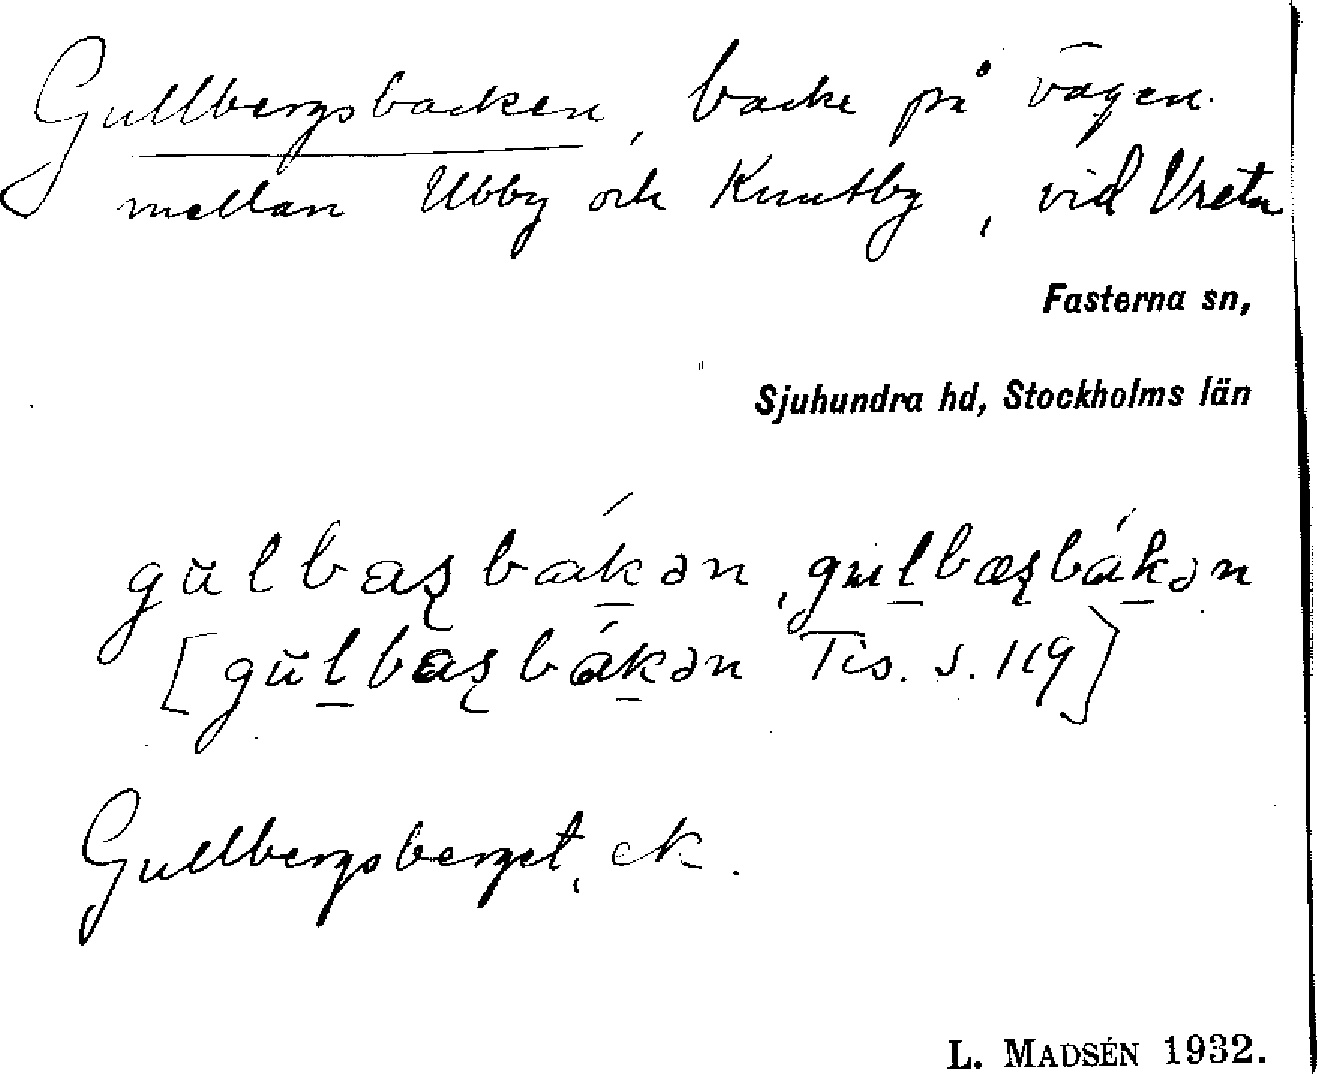 Gullbergsbacken, backe på vägen
mellan Ubby och Knutby, vid Vreta
Fasterna sn,
Sjuhundra hd, Stockholms län
gŭlbaʂbákən, gulbæʂbákən
[gŭlbaʂbákən Tis. s. 119]
Gullbergsberget, ek.
L. MADSÉN 1932.